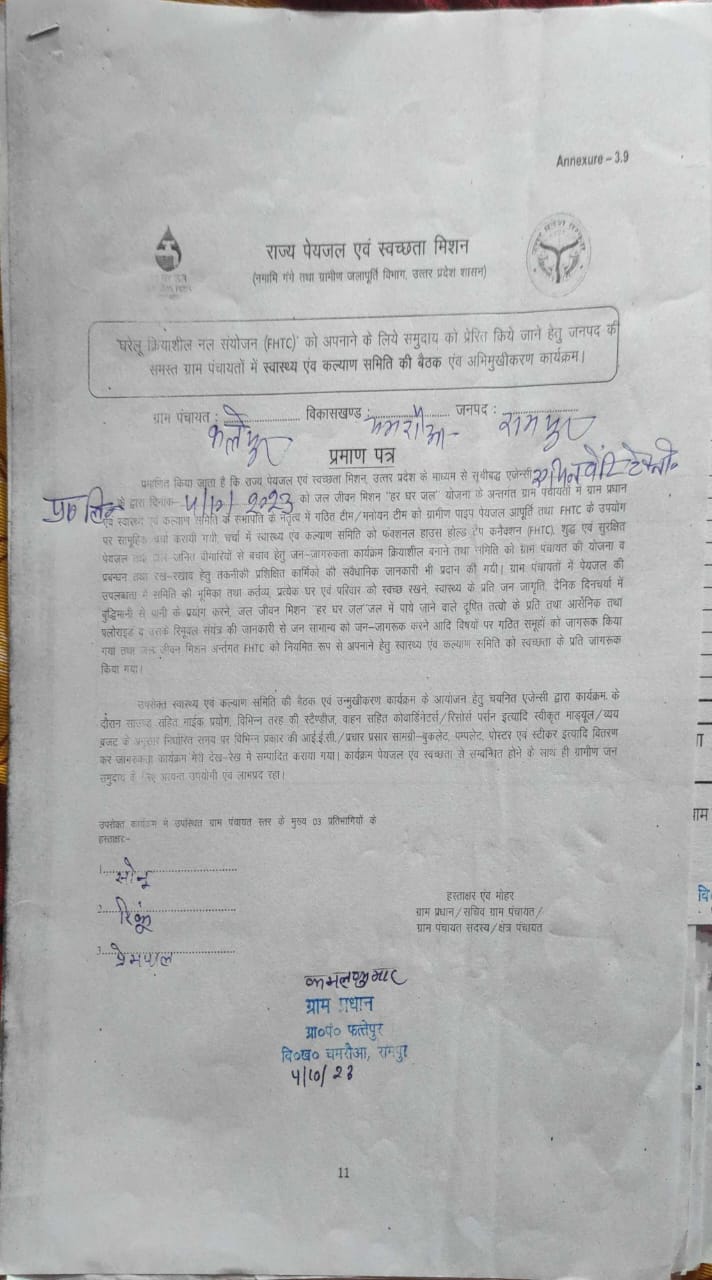 Annexure – 3.9
राज्य पेयजल एवं स्वच्छता मिशन
(नमामि गंगे तथा ग्रामीण जलापूर्ति विभाग, उत्तर प्रदेश शासन)
'घरेलू क्रियाशील नल संयोजन (FHTC)' को अपनाने के लिये समुदाय को प्रेरित किये जाने हेतु जनपद की
समस्त ग्राम पंचायतों में स्वास्थ्य एंव कल्याण समिति की बैठक एंव अभिमुखीकरण कार्यक्रम।
ग्राम पंचायत : फत्तेपुर विकासखण्ड : चमरौआ जनपद : रामपुर
प्रमाण पत्र
प्रमाणित किया जाता है कि राज्य पेयजल एवं स्वच्छता मिशन, उत्तर प्रदेश के माध्यम से सूचीबद्ध एजेन्सी
प्रा० लि० के द्वारा दिनांक- 4/10/2023 को जल जीवन मिशन "हर घर जल" योजना के अन्तर्गत ग्राम पंचायतों में ग्राम प्रधान
एंव स्वास्थ्य एवं कल्याण समिति के सभापति के नेतृत्व में गठित टीम/मनोयन टीम को ग्रामीण पाइप पेयजल आपूर्ति तथा FHTC के उपयोग
पर सामूहिक चर्चा करायी गयी, चर्चा में स्वास्थ्य एंव कल्याण समिति को फंक्शनल हाउस होल्ड टैप कनैक्शन (FHTC), शुद्ध एवं सुरक्षित
पेयजल तथा जल जनित बीमारियों से बचाव हेतु जन-जागरुकता कार्यक्रम क्रियाशील बनाने तथा समिति को ग्राम पंचायत की योजना व
प्रबन्धन तथा रख-रखाव हेतु तकनीकी प्रशिक्षित कार्मिको की सवैधानिक जानकारी भी प्रदान की गयी। ग्राम पंचायतों में पेयजल की
उपलब्धता में समिति की भूमिका तथा कर्तव्य, प्रत्येक घर एवं परिवार को स्वच्छ रखने, स्वास्थ्य के प्रति जन जागृति, दैनिक दिनचर्या में
बुद्धिमानी से पानी के प्रयोग करने, जल जीवन मिशन "हर घर जल"जल में पाये जाने वाले दूषित तत्वो के प्रति तथा आर्सेनिक तथा
फ्लोराइड व उसके रिमूवल संयंत्र की जानकारी से जन सामान्य को जन-जागरूक करने आदि विषयों पर गठित समूहों को जागरूक किया
गया तथा जल जीवन मिशन अर्न्तगत FHTC को नियमित रूप से अपनाने हेतु स्वास्थ्य एंव कल्याण समिति को स्वच्छता के प्रति जागरूक
किया गया।
उपरोक्त स्वास्थ्य एवं कल्याण समिति की बैठक एवं उन्मुखीकरण कार्यक्रम के आयोजन हेतु चयनित एजेन्सी द्वारा कार्यक्रम के
दौरान साउण्ड सहित माईक प्रयोग, विभिन्न तरह की स्टैण्डीज, वाहन सहित कोवार्डिनेटर्स/रिसोर्स पर्सन इत्यादि स्वीकृत माड्यूल/व्यय
बजट के अनुसार निर्धारित समय पर विभिन्न प्रकार की आई.ई.सी./प्रचार प्रसार सामग्री-बुकलेट, पम्पलेट, पोस्टर एवं स्टीकर इत्यादि वितरण
कर जागरुकता कार्यक्रम मेरी देख-रेख मे सम्पादित कराया गया। कार्यक्रम पेयजल एवं स्वच्छता से सम्बन्धित होने के साथ ही ग्रामीण जन
समुदाय के लिए अत्यन्त उपयोगी एवं लाभप्रद रहा।
उपरोक्त कार्यक्रम मे उपस्थित ग्राम पंचायत स्तर के मुख्य 03 प्रतिभागियों के
हस्ताक्षर:-
1. सोनू
2. रिंकू
3. प्रेमपाल
हस्ताक्षर एंव मोहर
ग्राम प्रधान/सचिव ग्राम पंचायत/
ग्राम पंचायत सदस्य/क्षेत्र पंचायत
कमलकुमार
ग्राम प्रधान
ग्रा०पं० फत्तेपुर
वि०ख० चमरौआ, रामपुर
4/10/23
11